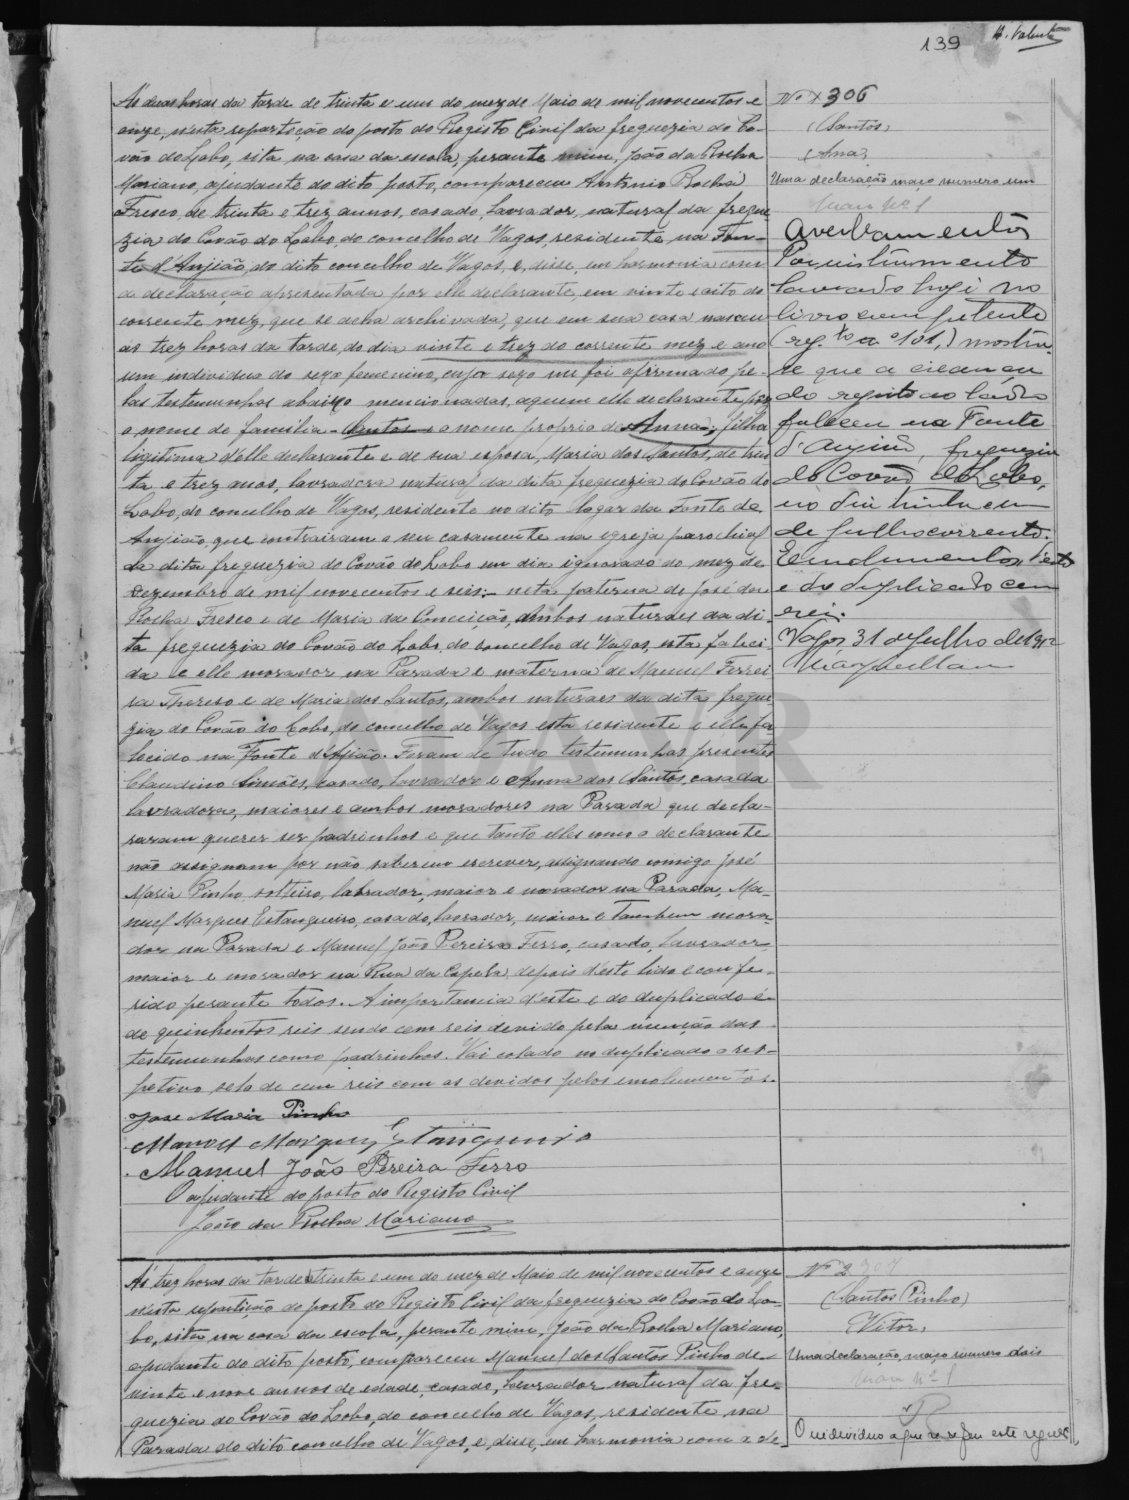 139
Ás duas horas da tarde de trinta e um do mez de Maio de mil novecentos e
onze, n'esta repartição do posto do Registo Civil da freguezia do Co-
vão do Lobo, sita na casa da escola, perante mim, João da Rocha
Mariano, ajudante do dito posto, compareceu Antonio Rocha
Fresco, de trinta e trez annos, casado, lavrador, natural da fregue
zia do Covão do Lobo, do concelho de Vagos, residente na Fon-
te d'Anjião, do dito concelho de Vagos, e, disse, em harmonia com
a declaração apresentada por elle declarante, em vinte e oito do
corrente mez, que se acha archivada, que em sua casa nasceu
ás trez horas da tarde, do dia vinte e trez do corrente mez e ano
um individuo do sexo femenino, cujo sexo me foi afirmado pe-
las testemunhas abaixo mencionadas, a quem elle declarante poz
o nome de familia - Santos - e o nome proprio de Anna; filha
ligitima d'elle declarante e de sua esposa, Maria dos Santos, de trin
ta e trez anos, lavradora natural da dita freguezia do Covão do
Lobo, do concelho de Vagos, residente no dito logar da Fonte de
Anjião, que contrairam o seu casamento na egreja parochial
da dita freguezia do Covão do Lobo em dia ignorado do mez de
Dezembro de mil novecentos e seis:- neta paterna de José da
Rocha Fresco e de Maria da Conceição, ambos naturaes da di-
ta freguezia do Covão do Lobo, do concelho de Vagos, esta faleci-
da e elle morador na Parada e materna de Manuel Ferrei
ra Thereso e de Maria dos Santos, ambos naturaes da dita fregue
zia do Covão do Lobo, do concelho de Vagos esta residente e elle fa
lecido na Fonte d'Anjião. Foram de tudo testemunhas presentes
Claudino Simões, casado, lavrador e Anna dos Santos, casada
lavradora, maiores e ambos moradores na Parada que decla-
raram querer ser padrinhos e que tanto elles como o declarante
não assignam por não saberem escrever, assignando comigo José
Maria Pinho solteiro, labrador, maior e morador na Parada, Ma-
nuel Marques Estangueiro, casado, lavrador, maior e tambem mora-
dor na Parada e Manuel João Pereira Ferro, casado, lavrador,
maior e morador na Rua da Capela, depois d'este lido e confe-
rido perante todos. A importancia d'este e do duplicado é
de quinhentos reis sendo cem reis devido pela menção das
testemunhas como padrinhos. Vai colado no duplicado o res-
petivo selo de cem reis com os devidos pelos emolumentos.
Jose Maria Pinho
Manoel Marques Estangueiro
Manuel João Pereira Ferro
O ajudante do posto do Registo Civil
João da Rocha Mariano
Nº 1 306
(Santos)
(Ana)
Uma declaração maço numero um
Maço Nº 1
Averbamento
Por instrumento
lavrado hoje no
livro competente
(reg.to nº 101,) mostra-
se que a creança
do registo ao lado
faleceu na Fonte
d'Anjião, freguezia
do Covão do Lobo,
no dia trinta e um
de Julho corrente.
Emolumentos d'este
e do duplicado cem
reis.
Vagos 31 de Julho de 1912
Ás trez horas da tarde de trinta e um do mez de Maio de mil novecentos e onze
n'esta repartição do posto do Registo Civil da freguezia do Covão do Lo-
bo, sita na casa da escola, perante mim, João da Rocha Mariano,
ajudante do dito posto, compareceu Manuel dos Santos Pinho de
vinte e nove annos de edade, casado, lavrador natural da fre-
guezia do Covão do Lobo, do concelho de Vagos, residente na
Parada do dito concelho de Vagos, e, disse, em harmonia com a de-
Nº 2 307
(Santos Pinho)
Vitor,
Uma declaração, maço numero dois
Maço Nº 1
O individuo a que se refere este registo